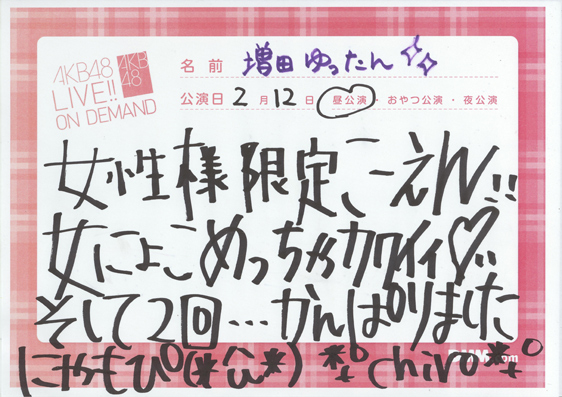 AKB48
LIVE!!
ON DEMAND
AKB
48
名前 増田 ゆったん
公演日 2月12日 昼公演・おやつ公演・夜公演
女性様限定こーえん!!
女によこめっちゃカワイィ♡!!
そして2回…がんばりました
にゃもぴ(*ω*) *°chiro*°